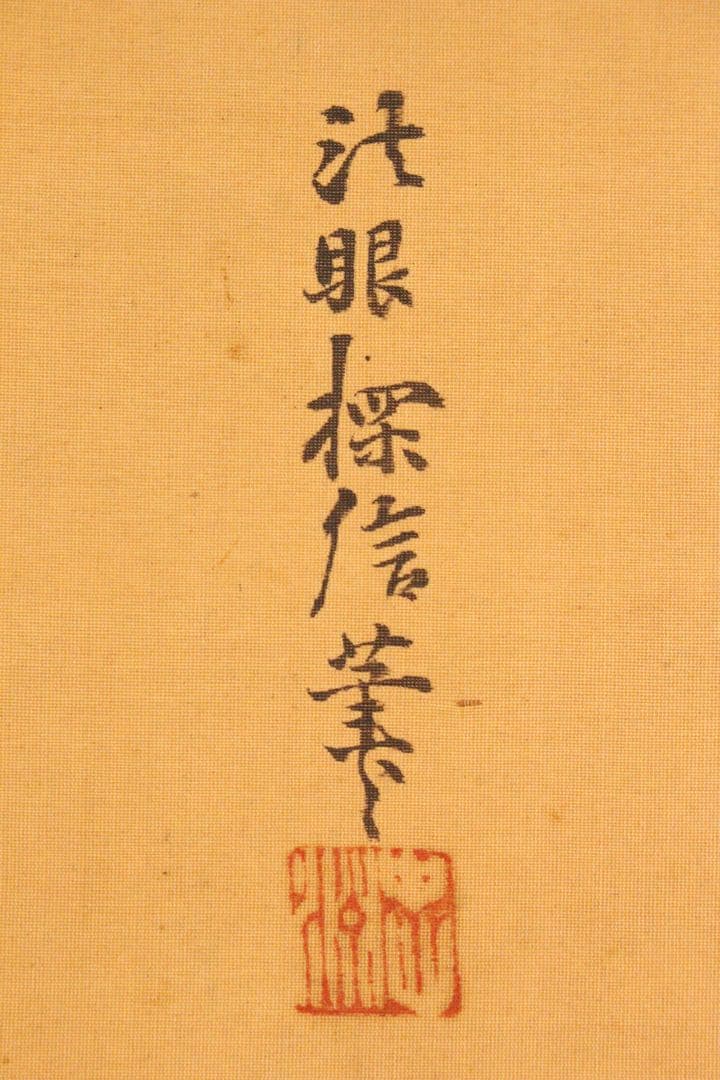 法眼探信筆